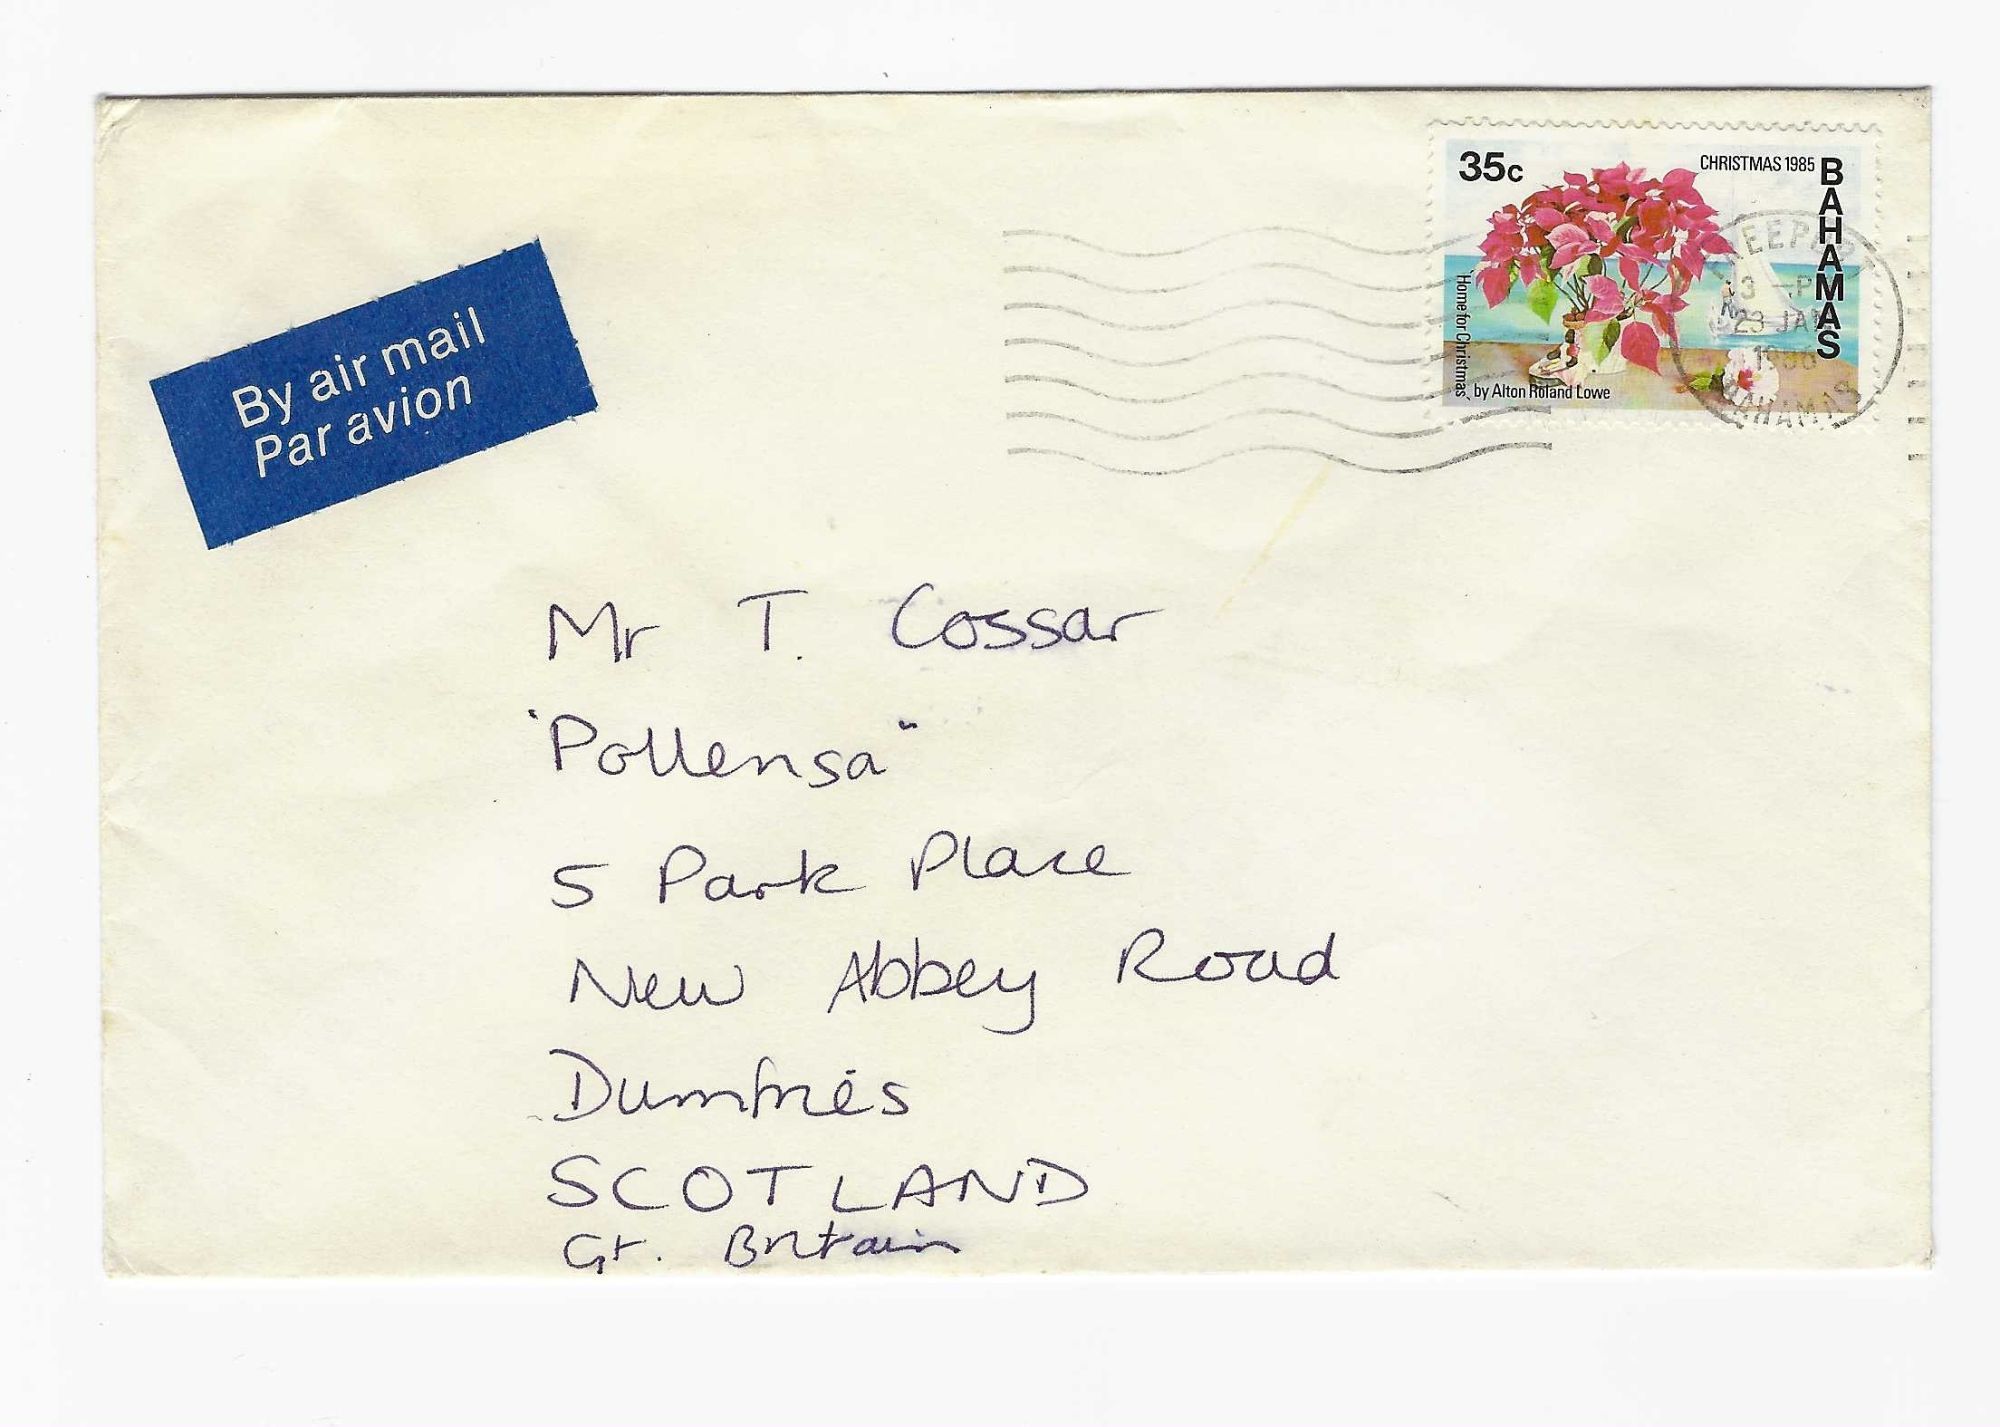 35c
CHRISTMAS 1985
BAHAMAS
'Home for Christmas' by Alton Roland Lowe
23 JAN
BAHAMAS
By air mail
Par avion
Mr T. Cossar
"Pollensa"
5 Park Place
New Abbey Road
Dumfries
SCOTLAND
Gt. Britain